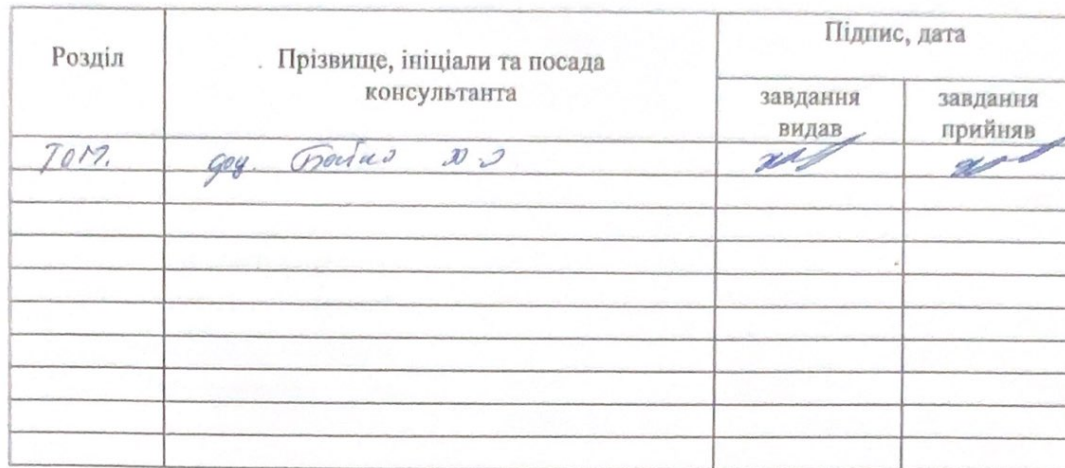 Розділ
Прізвище, ініціали та посада
консультанта
Підпис, дата
завдання
видав
завдання
прийняв
доц. Бойко